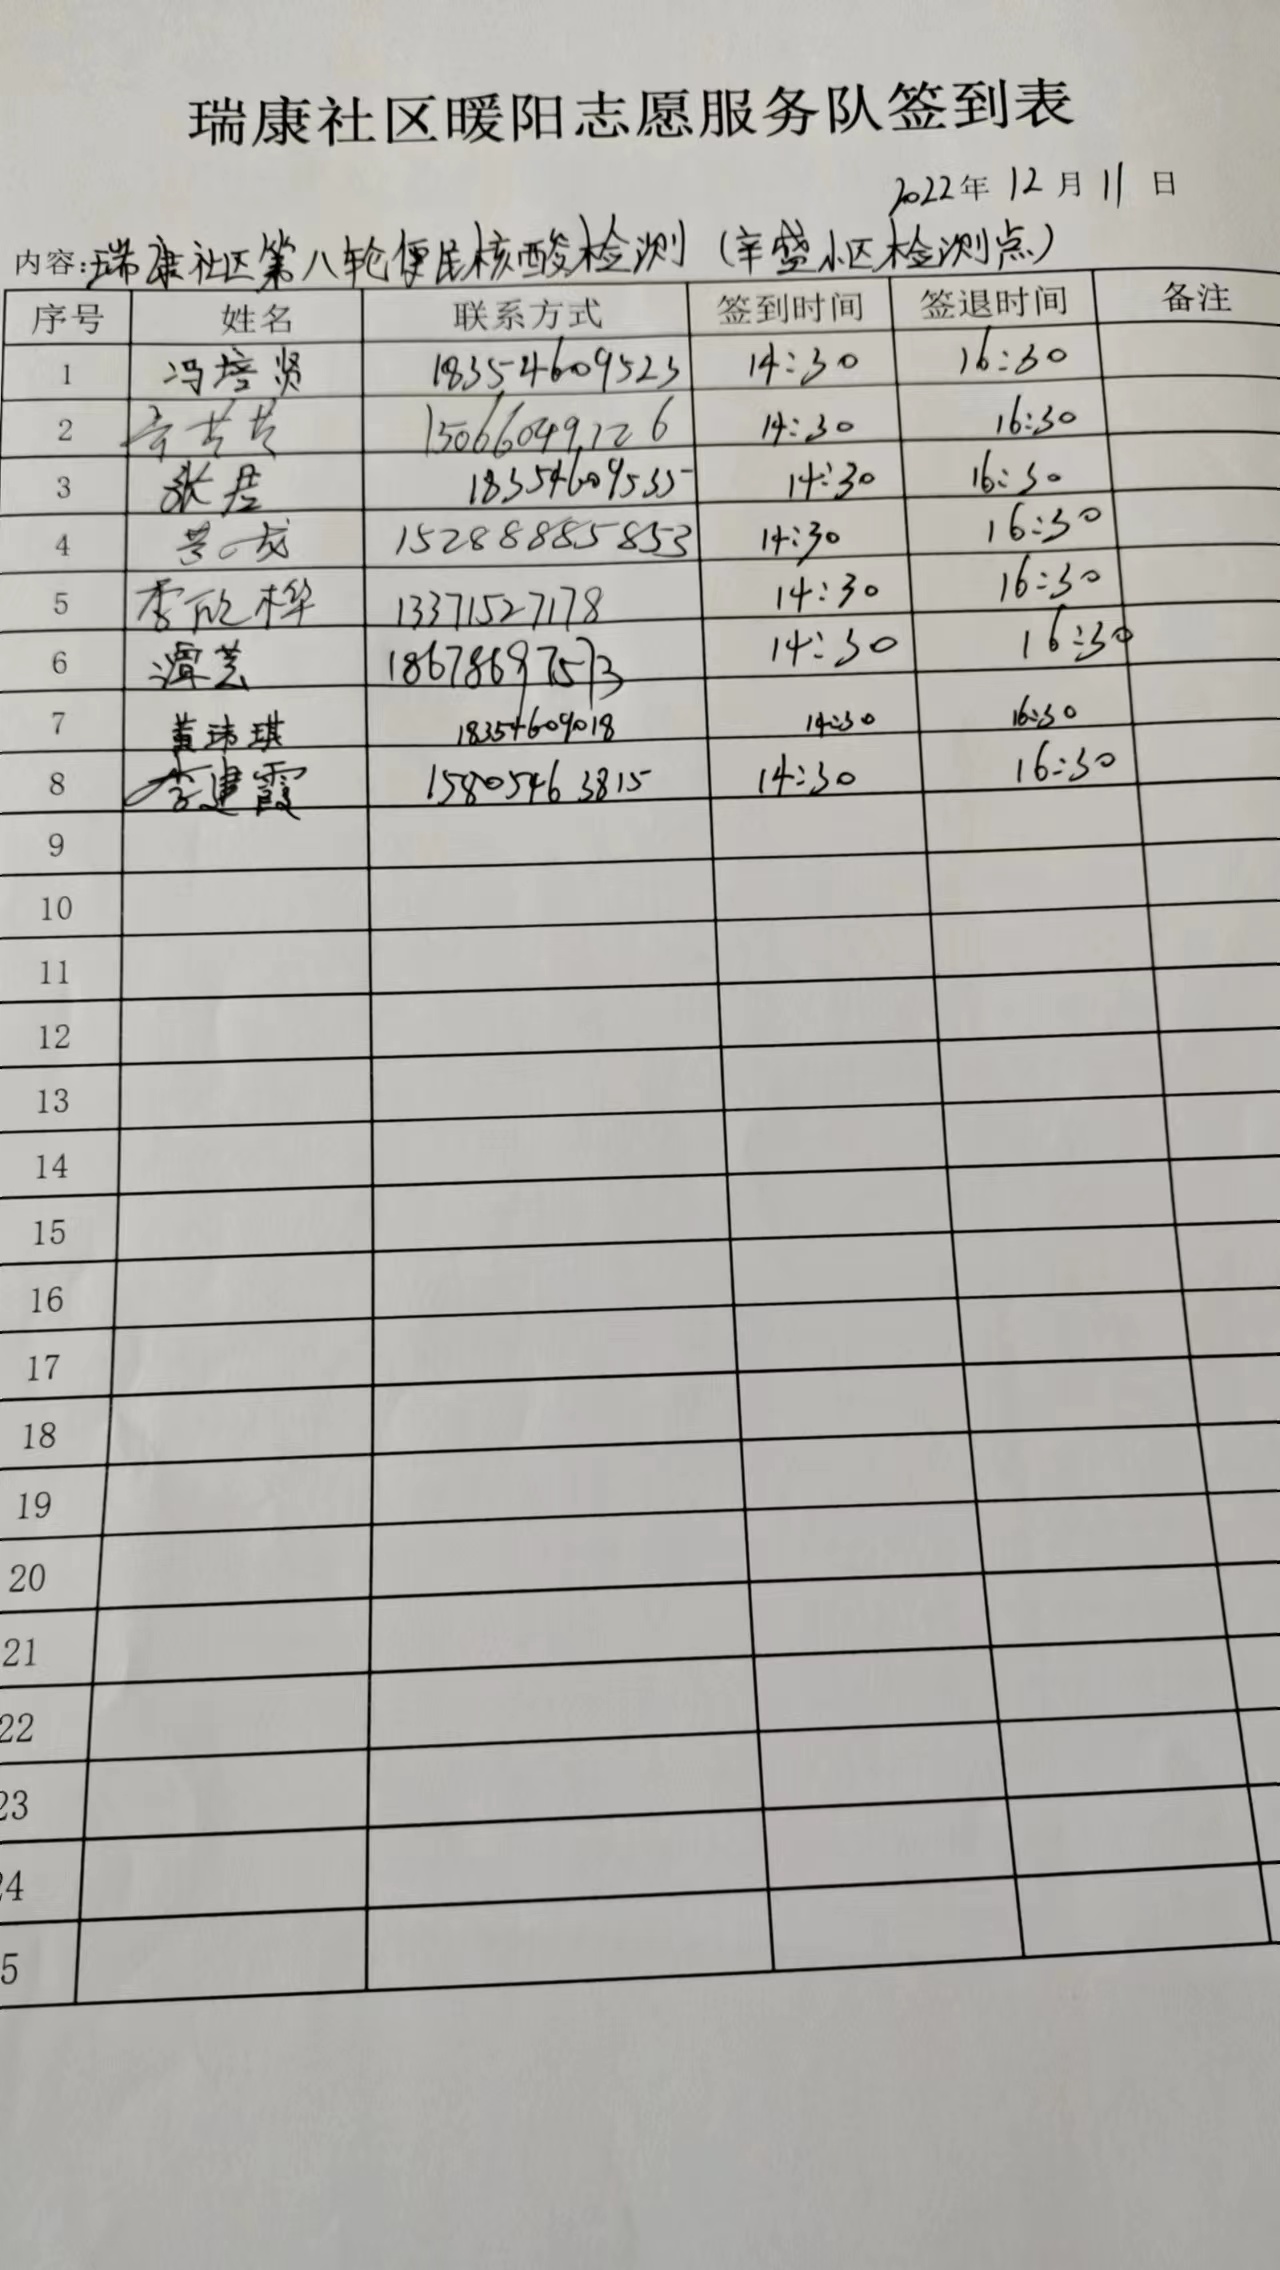 瑞康社区暖阳志愿服务队签到表
2022年 12月 11日
内容:瑞康社区第八轮便民核酸检测（辛盛小区检测点）
序号 姓名 联系方式 签到时间 签退时间 备注
1 冯培贤 18354609523 14:30 16:30
2 15066049126 14:30 16:30
3 张君 18354609535 14:30 16:30
4 15288885853 14:30 16:30
5 李欣桦 13371527178 14:30 16:30
6 潭芸 18678697573 14:30 16:30
7 黄玮琪 18354609018 14:30 16:30
8 李建霞 15805463815 14:30 16:30
9
10
11
12
13
14
15
16
17
18
19
20
21
22
23
24
5